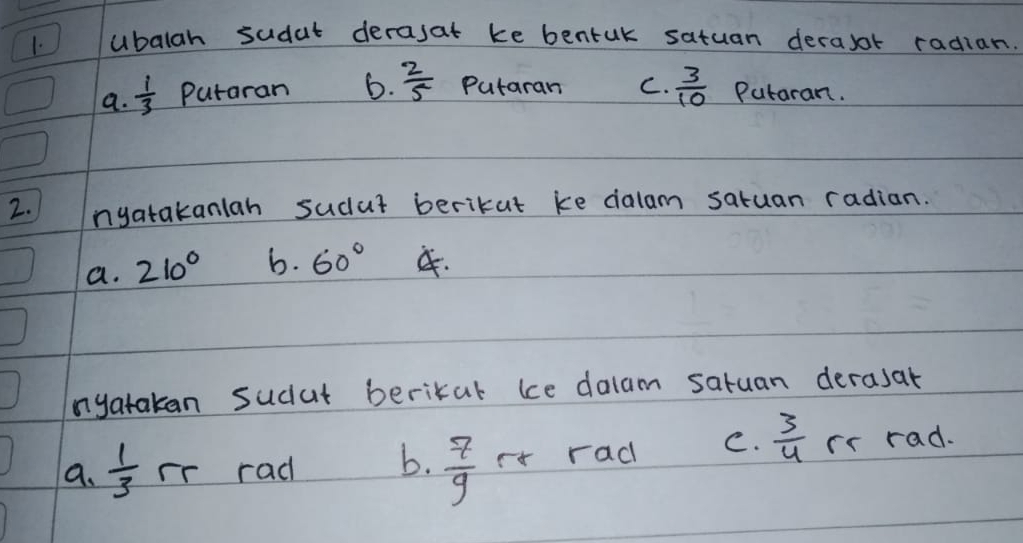 1. Ubalah sudut derajat ke bentuk satuan derajat radian.
a. 1/3 Putaran b. 2/5 Putaran c. 3/10 Putaran.
2. nyatakanlah sudut berikut ke dalam satuan radian.
a. 210° b. 60°
nyatakan sudut berikut ke dalam satuan derajat
a. 1/3 π rad b. 7/9 π rad c. 3/4 π rad.